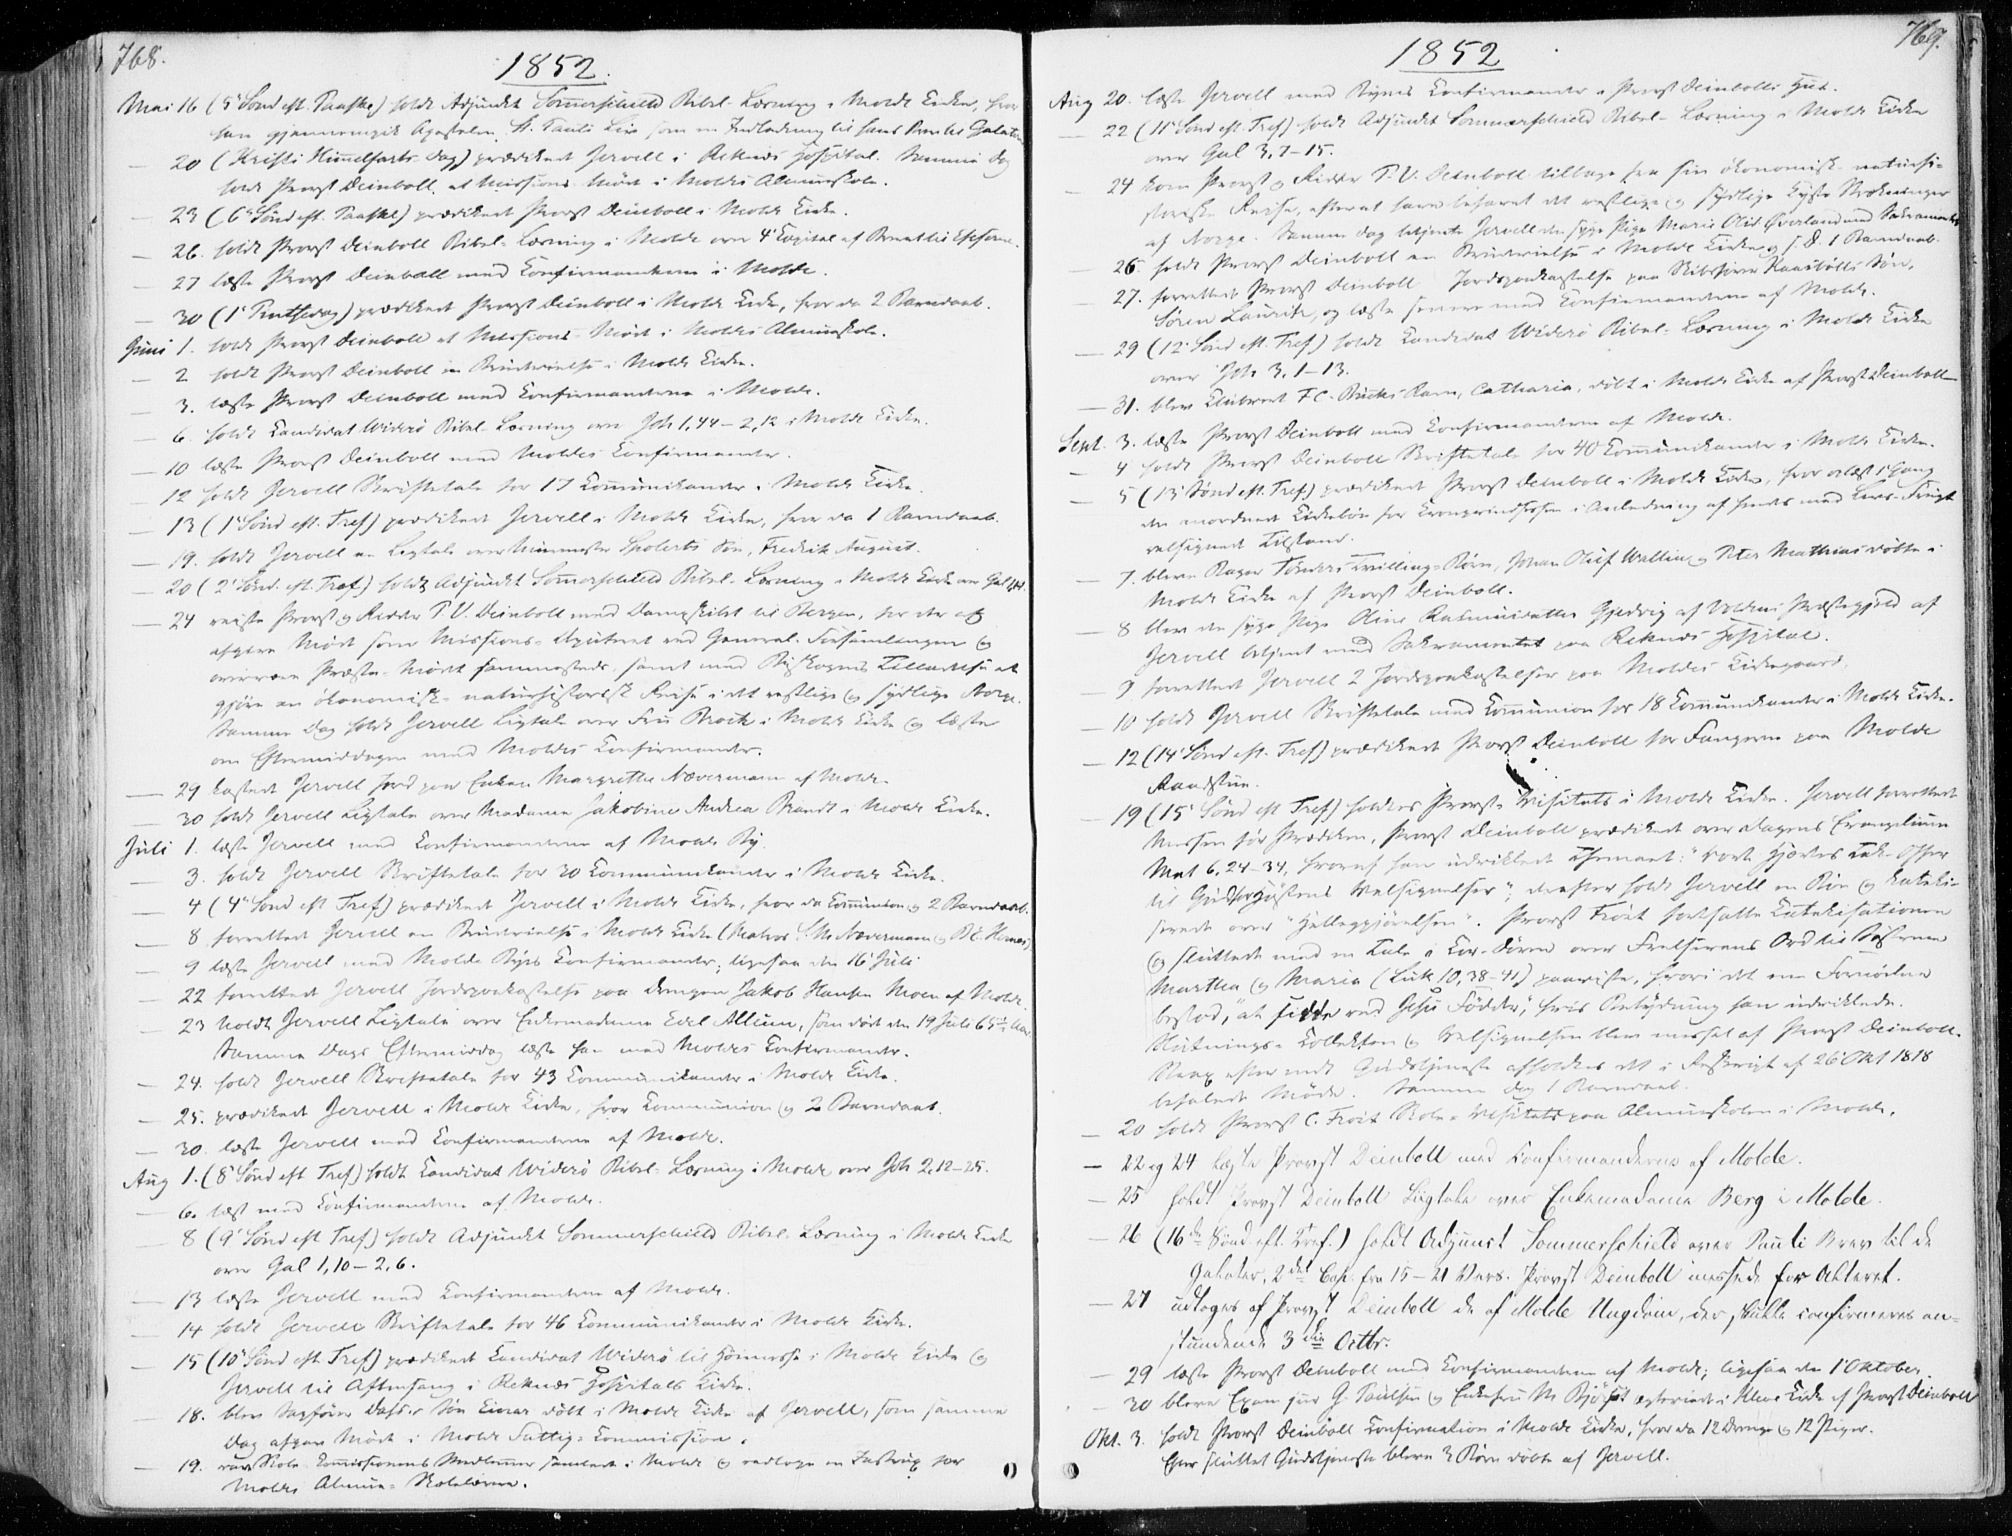 768.
1852.
Mai 16 (5' Sønd eft. Paaske) holdt Adjunkt Sommerschield Bibel-Læsning i Molde Kirke, hvor
han gjennemgik Apostelen St. Pauli Liv som en Indledning til hans Brev til Galaterne
— 20 (Kristi Himmelfarts-Dag) prædikede Jervell i Reknes Hospital. Samme Dag
holdt Provst Deinboll et Missions-Møde i Molde Almueskole.
— 23 (6' Sønd eft. Paaske) prædikede Provst Deinboll i Molde Kirke.
— 26. holdt Provst Deinboll Bibel-Læsning i Molde over 4' Kapitel af Brevet til Efeserne.
— 27 læste Provst Deinboll med Konfirmanderne i Molde.
— 30 (1' Pintsedag) prædikede Provst Deinboll i Molde Kirke, hvor da 2 Barnedaab.
Juni 1. holdt Provst Deinboll et Missions-Møde i Molde Almueskole.
— 2 holdt Provst Deinboll en Brudevielse i Molde Kirke.
— 3. læste Provst Deinboll med Konfirmanderne i Molde.
— 6. holdt Kandidat Widerö Bibel-Læsning over Joh 1,44–2,12 i Molde Kirke.
— 10 læste Provst Deinboll med Moldes Konfirmander.
— 12 holdt Jervell Skriftetale for 17 Kommunikanter i Molde Kirke.
— 13 (1' Sønd eft. Tref) prædikede Jervell i Molde Kirke, hvor da 1 Barnedaab.
— 19. holdt Jervell en Ligtale over Søn, Fredrik August.
— 20 (2' Sønd. eft. Tref.) holdt Adjunkt Sommerschield Bibel-Læsning i Molde Kirke over Gal
— 24 reiste Provst og Ridder P. V. Deinboll med Dampskibet til Bergen, for der at
afgive Møde som Missions-Deputeret ved General-Forsamlingen og
overvære Præste-Mødet sammesteds, samt med Biskopens Tilladelse at
gjøre en økonomisk-naturhistorisk Reise i det vestlige og sydlige Norge.
Samme Dag holdt Jervell Ligtale over Fru Brock i Molde Kirke og læste
om Eftermiddagen med Moldes Konfirmander.
— 29 kastede Jervell Jord paa Enken Margrethe Nævermann af Molde.
— 30 holdt Jervell Ligtale over Madame Jakobine Andrea Brandt i Molde Kirke.
Juli 1. læste Jervell med Konfirmanderne af Molde By.
— 3. holdt Jervell Skriftetale for 30 Kommunikanter i Molde Kirke.
— 4 (4' Sønd eft Tref) prædikede Jervell i Molde Kirke, hvor da Kommunion og 2 Barnedaab.
— 8 forrettede Jervell en Brudevielse i Molde Kirke (Matros Nævermann og
— 9 læste Jervell med Molde Byes Konfirmander; ligesaa den 16' Juli
— 22 forrettede Jervell Jordspaakastelse paa Drengen Jakob Hansen Moen af Molde.
— 23 holdt Jervell Ligtale over Enkemadame Edel Allum, som døde den 19 Juli 65
Samme Dags Eftermiddag læste han med Moldes Konfirmander.
— 24. holdt Jervell Skriftetale for 43 Kommunikanter i Molde Kirke.
— 25. prædikede Jervell i Molde Kirke, hvor Kommunion og 2 Barnedaab.
— 30. læste Jervell med Konfirmanderne af Molde.
Aug 1. (8' Sønd eft Tref) holdt Kandidat Widerö Bibel-Læsning i Molde over Joh 2,12–25.
— 6. læst med Konfirmanderne af Molde.
— 8 (9' Sønd eft Tref) holdt Adjunkt Sommerschield Bibel-Læsning i Molde Kirke
over Gal 1,10–2,6.
— 13 læste Jervell med Konfirmanderne af Molde.
— 14 holdt Jervell Skriftetale for 46 Kommunikanter i Molde Kirke.
— 15 (10' Sønd eft Tref) prædikede Kandidat Widerö til Høimesse i Molde Kirke og
Jervell til Aftensang i Reknes Hospitals Kirke.
18. blev Sagfører Søn Einar døbt i Molde Kirke af Jervell, som samme
Dag afgav Møde i Molde Fattig-Kommission.
— 19. vare Skole-Kommissionens Medlemmer samlede i Molde og vedtoge en for
Molde Almue-Skolelærer.
769.
1852
Aug 20. læste Jervell med Byens Konfirmander i Provst Deinbolls Hus.
— 22 (11' Sønd eft. Tref) holdt Adjunkt Sommerschield Bibel-Læsning i Molde Kirke
over Gal 3,7–15.
— 24 kom Provst og Ridder P. V. Deinboll tilbage fra sin økonomisk-naturhi-
storiske Reise, efterat have befaret det vestlige og sydlige Kyst-Strækninger
af Norge. Samme Dag betjente Jervell den syge Pige Marie Øverland med Sakramentet
— 26. holdt Provst Deinboll en Brudevielse i Molde Kirke og s. D. 1 Barnedaab.
— 27. forrettede Provst Deinboll Jordspaakastelse paa Søn,
Søren Lauritz, og læste senere med Konfirmanderne af Molde.
— 29 (12' Sønd eft. Tref) holdt Kandidat Widerö Bibel-Læsning i Molde Kirke
over Joh 3,1–13.
— 31. blev Barn, Catharia, døbt i Molde Kirke af Provst Deinboll
Sept. 3. læste Provst Deinboll med Konfirmanderne af Molde.
— 4 holdt Provst Deinboll Skriftetale for 40 Kommunikanter i Molde Kirke.
— 5 (13' Sønd eft. Tref) prædikede Provst Deinboll i Molde Kirke, hvor oplæst 1' Gang
den anordnede Kirkebøn for Kronprindsessen i Anledning af hendes med Livs-Frugt
velsignede Tilstand.
— 7. bleve Tønders Tvilling-Børn, Johan Oluf Wallin og Peter Mathias døbte i
Molde Kirke af Provst Deinboll.
— 8 blev den syge Pige Oline Rasmusdatter Gjedvig af Voldens Præstegjeld af
Jervell betjent med Sakramentet paa Reknes Hospital.
— 9 forrettede Jervell 2 Jordspaakastelser paa Moldes Kirkegaard.
— 10 holdt Jervell Skriftetale med Kommunion for 18 Kommunikanter i Molde Kirke.
— 12 (14' Sønd eft. Tref) prædikede Provst Deinboll for Fangerne paa Molde
Raadstue.
— 19 (15' Sønd eft Tref) holdtes Provste-Visitats i Molde Kirke. Jervell forrettede
Messen før Prædiken, Provst Deinboll prædikede over Dagens Evangelium
Mat 6,24–34, hvoraf han udviklede Themaet: "Vort Hjertes Tak-Offer
til Gud for Høstens Velsignelser"; derefter holdt Jervell en Bøn og kateki-
serede over "Helliggjørelsen". Provst Froit fortsatte Katekisationen
og sluttede med en Tale i Kor-Døren over Frelserens Ord til Søstrene
Martha og Maria (Luk 10,38–41) paaviste, hvori det ene Fornødne
bestod, "at sidde ved Jesu Fødder", hvis Betydning han udviklede.
Slutnings-Kollekten og Velsignelsen blev messet af Provst Deinboll.
Strax efter endt Gudstjeneste afholdtes det i Reskript af 26' Okt 1818
befalede Møde. Samme Dag 1 Barnedaab.
— 20 holdt Provst C. Froit Skole-Visitats paa Almueskolen i Molde.
— 22 og 24 læste Provst Deinboll med Konfirmanderne af Molde.
— 25 holdt Provst Deinboll Liigtale over Enkemadame Berg i Molde.
— 26 (16de Sønd. eft. Tref.) holdt Adjunct Sommerschield over Pauli Brev til de
Galater, 2det Cap. fra 15–21 Vers. Provst Deinboll messede for Alteret.
— 27 udtoges af Provst Deinboll de af Molde Ungdom, der skulle confirmeres an-
stundende 3die Octbr.
— 29 læste Provst Deinboll med Konfirmanderne af Molde; ligesaa den 1' Oktober.
— 30 bleve Exam jur G. Paulsen og Enkefru M. Bjørset egteviede i Molde Kirke af Provst Deinboll
Okt. 3. holdt Provst Deinboll Konfirmation i Molde Kirke, hvor da 12 Drenge og 12 Piger.
Efter sluttet Gudstjeneste bleve 3 Børn døbte af Jervell.